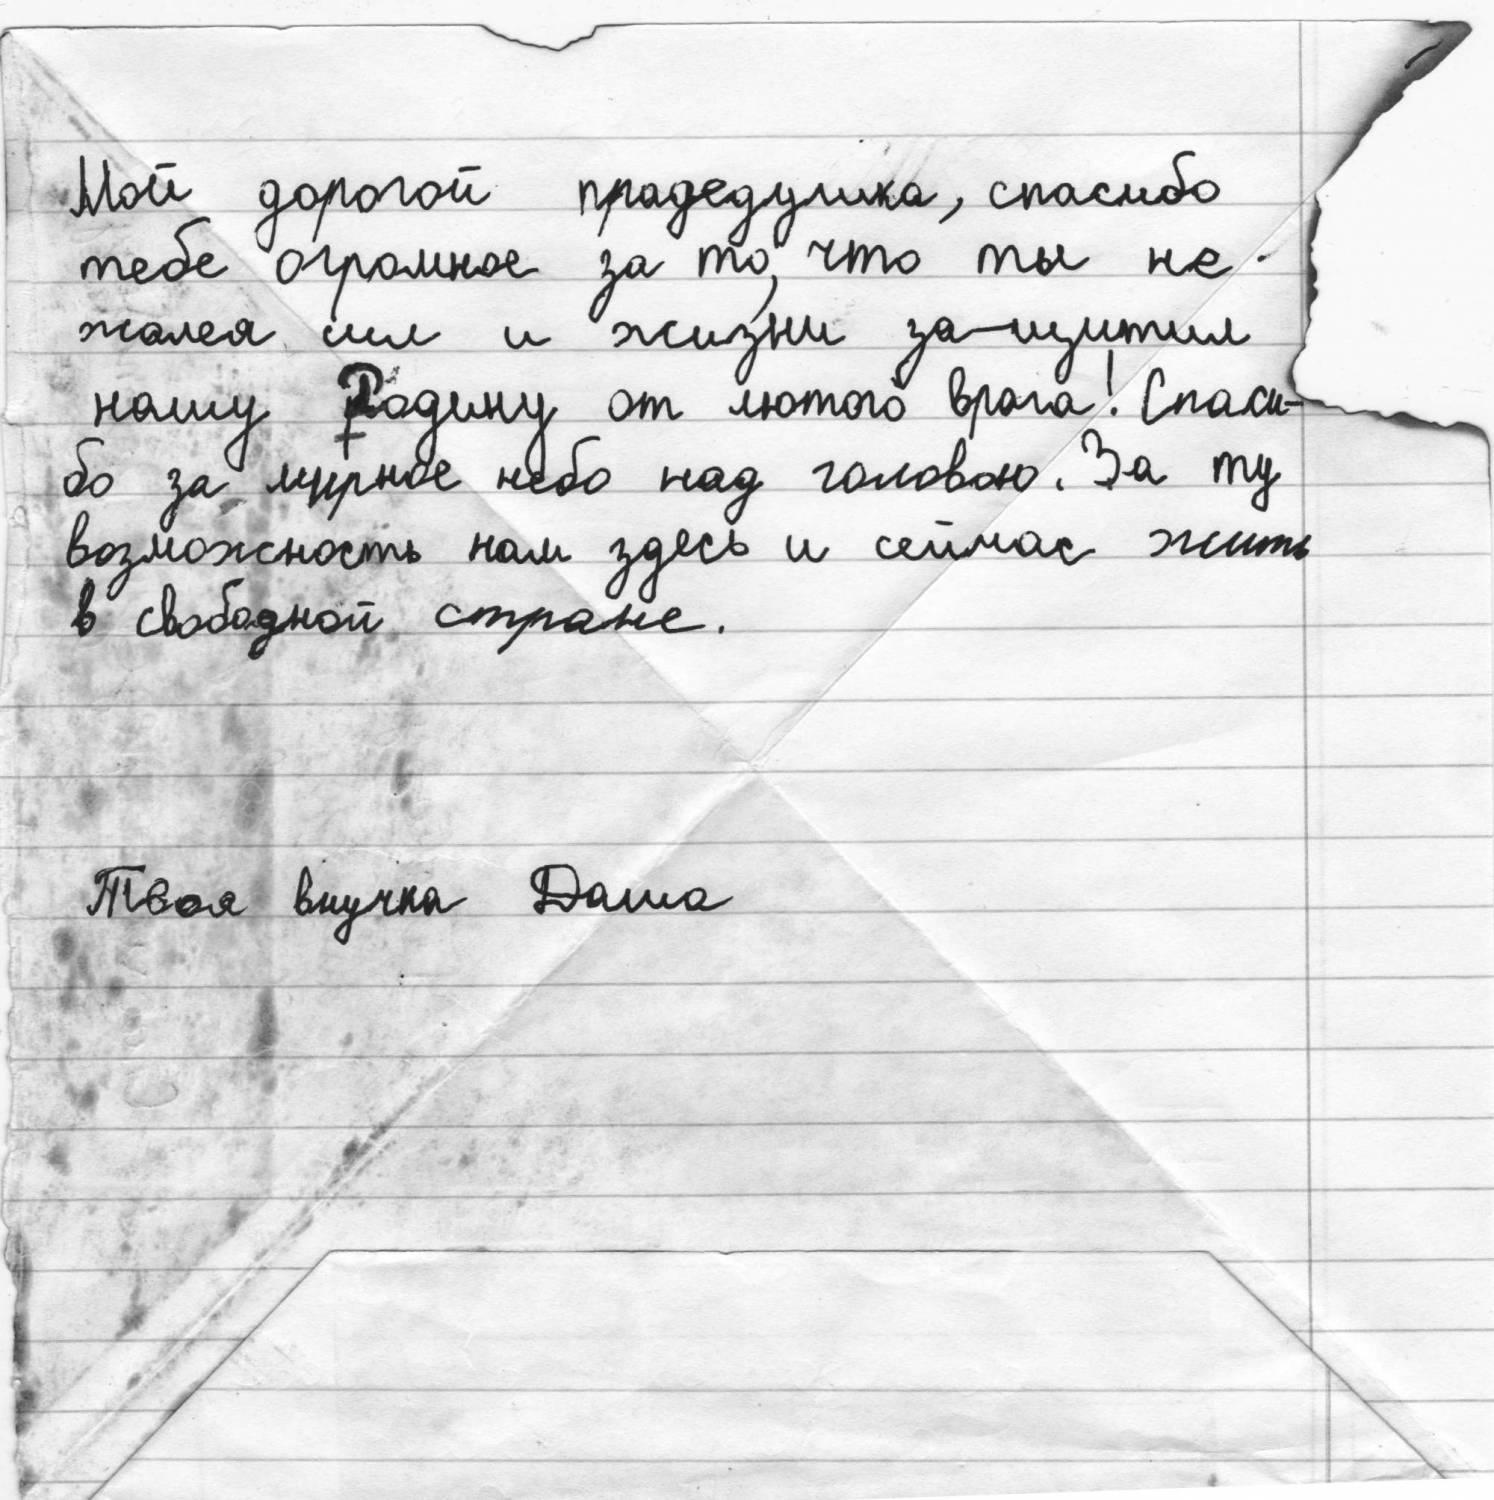 Мой дорогой прадедушка, спасибо
тебе огромное за то, что ты не
жалея сил и жизни защитил
нашу Родину от лютого врага! Спаси-
бо за мирное небо над головою. За ту
возможность нам здесь и сейчас жить
в свободной стране.
Твоя внучка Даша